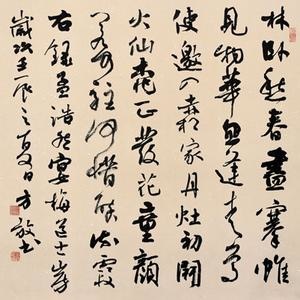 林卧愁春盡搴帷
見物華忽逢青鳥
使邀入赤松家丹灶初開
火仙桃正發花童顏
若可駐何惜醉流霞
右錄孟浩然宴梅道士山房
歲次壬辰之夏日方書